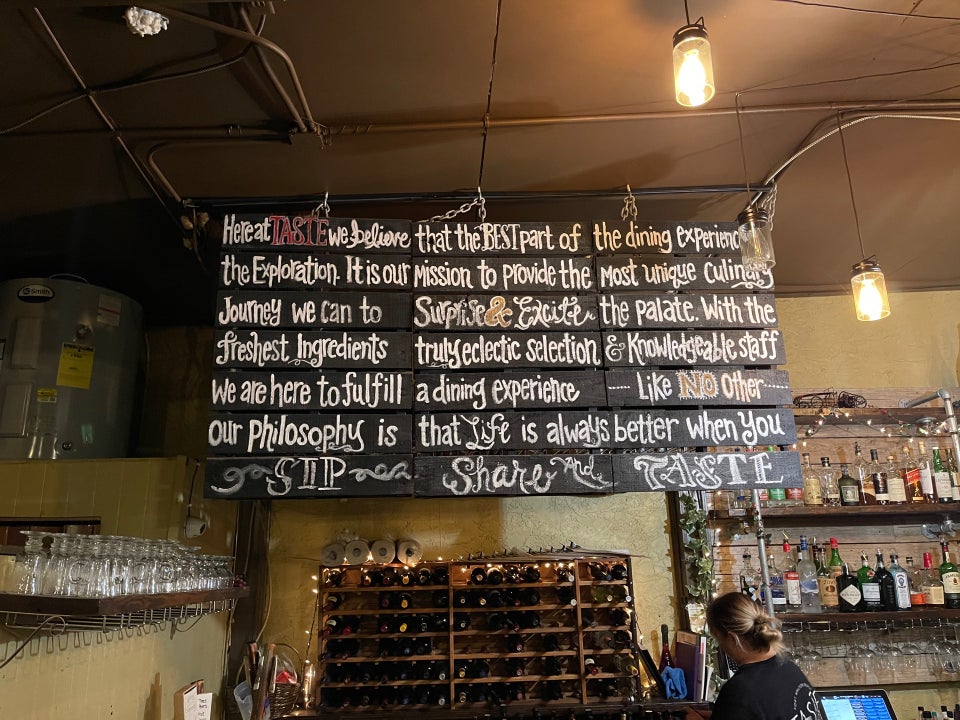 Here at TASTE we believe that the BEST part of the dining experience
the Exploration. It is our Mission to provide the most unique Culinary
Journey we can to Surprise & Excite the palate. With the
freshest Ingredients truly eclectic selection & Knowledgeable staff
we are here to fulfill a dining experience Like NO Other
our Philosophy is that Life is always better when You
SIP Share And TASTE